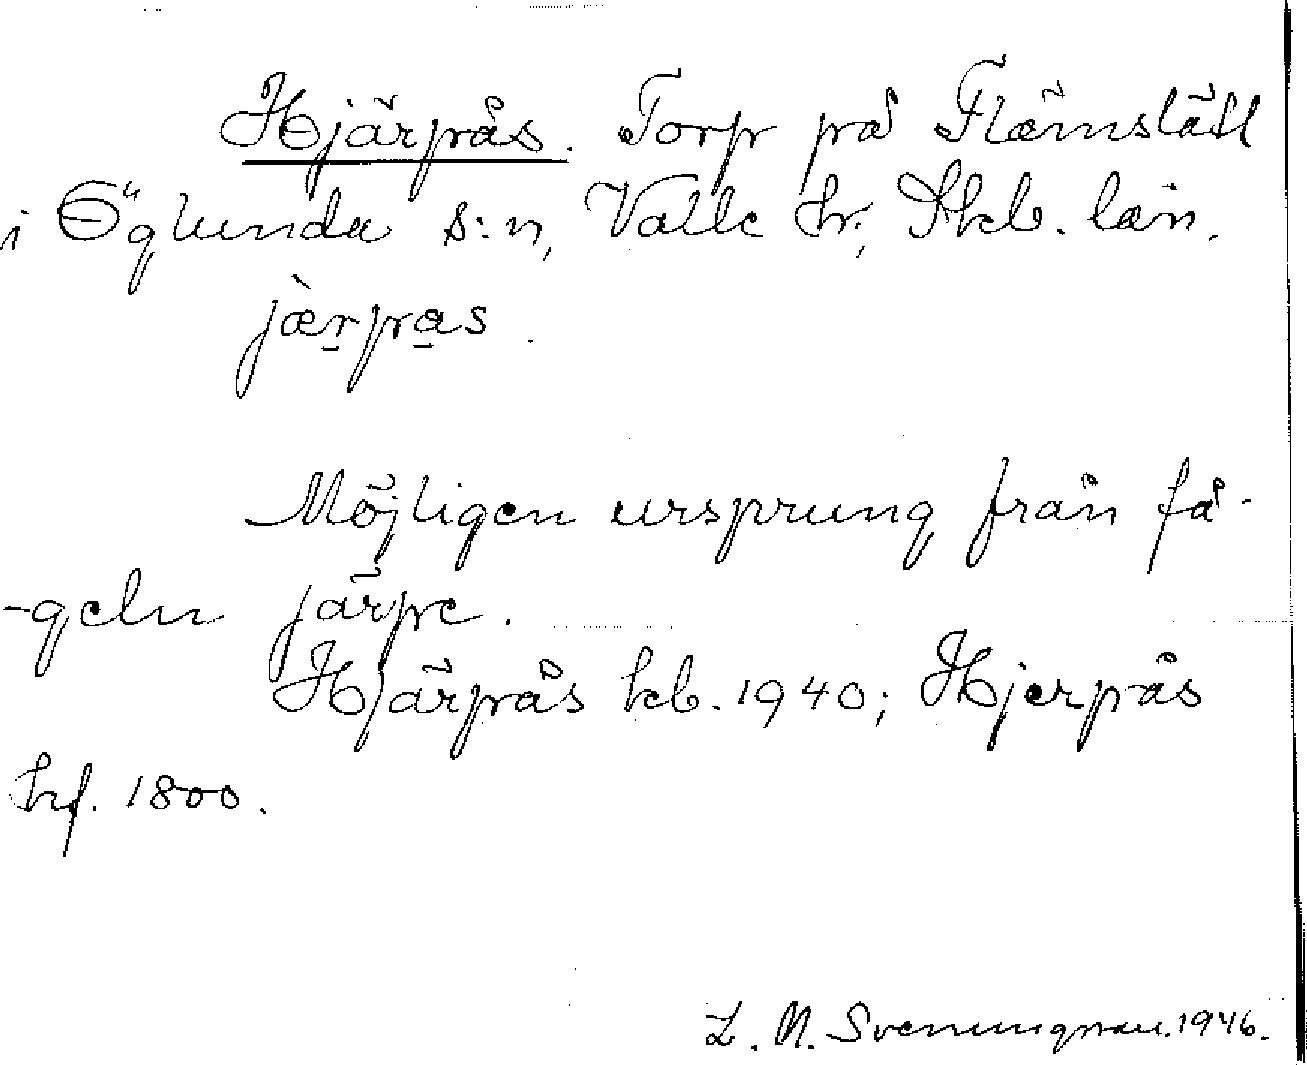 Hjärpås. Torp på Flämslätt
i Öglunda s:n, Valle hr, Skb. län.
jæ̀rpas.
Möjligen ursprung från få-
-geln järpe.
Hjärpås kb. 1940; Hjerpås
hf. 1800.
L. N. Svenungsson. 1946.